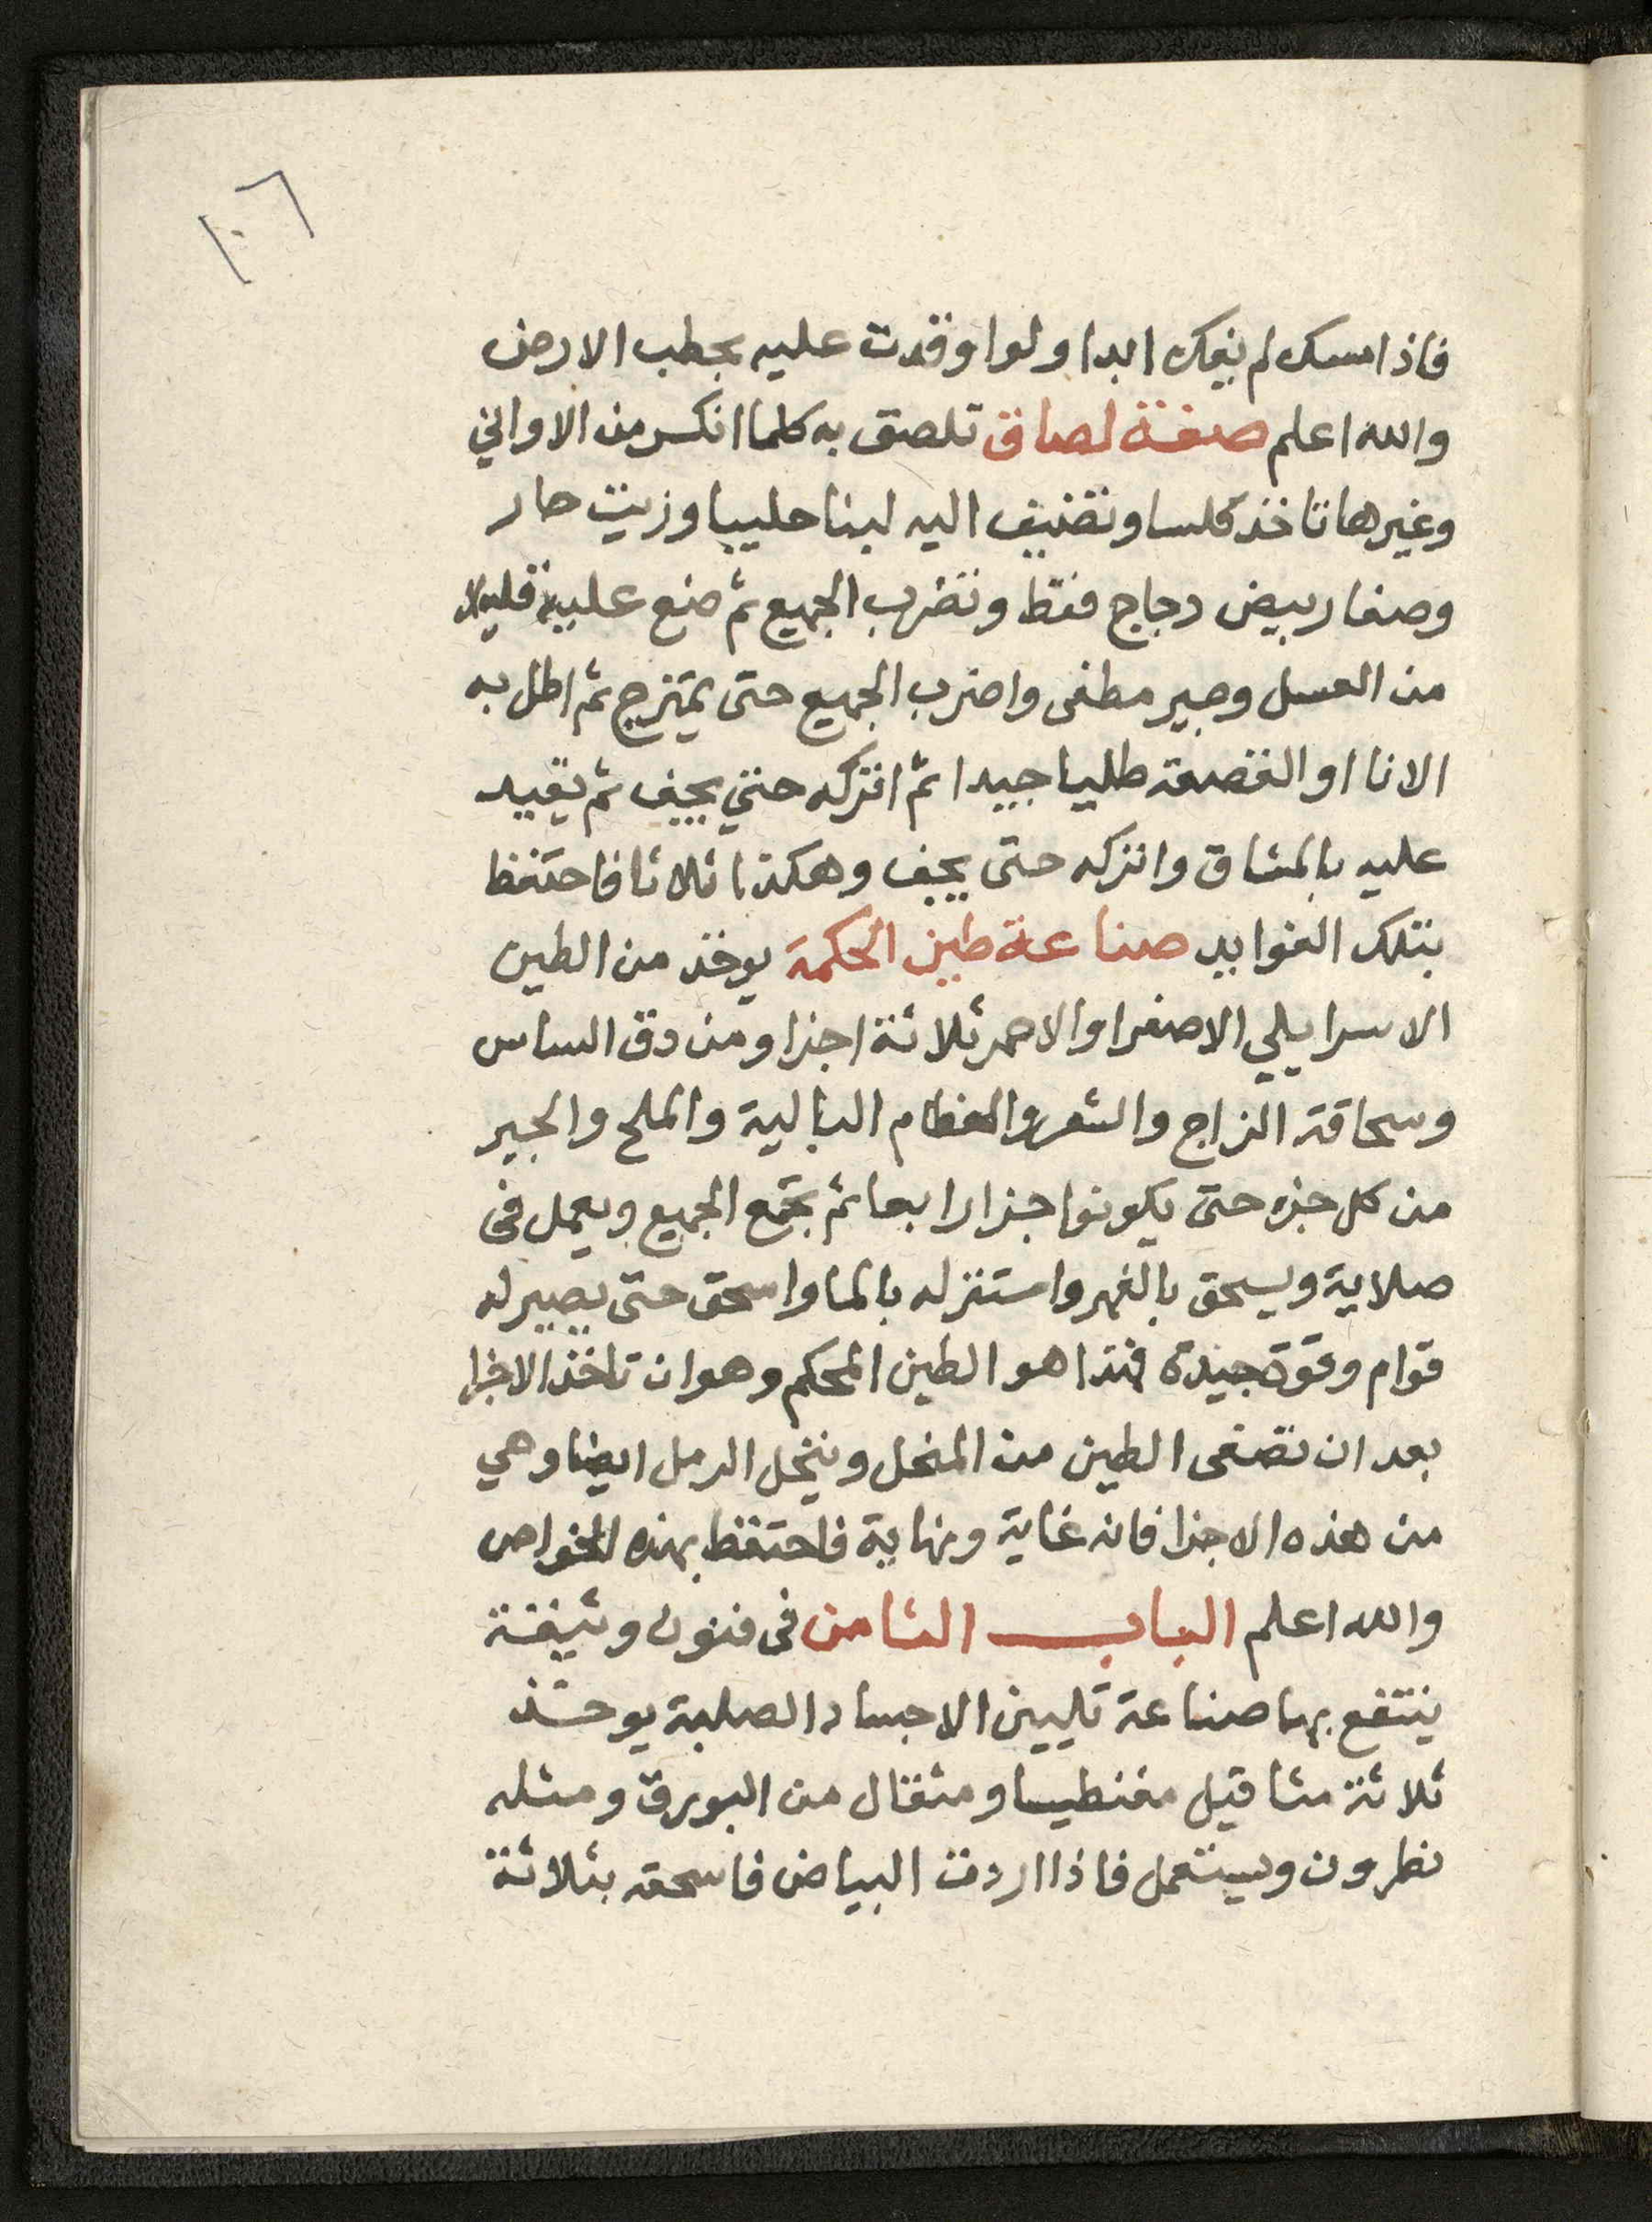 ١٠٦
فاذا مسك لم ينفك ابدا ولو اوقدت عليه بحطب الارض
والله اعلم صفة لصاق تلصق به كلما انكسر من الاواني
وغيرها تاخذ كلسا وتضيف اليه لبنا حليبا وزيت حار
وصفار بيض دجاج فقط وتضرب الجميع ثم ضع عليه قليلا
من العسل وجير مطفى واضرب الجميع حتى يمتزج ثم اطل به
الانا او القصعة طليا جيدا ثم اتركه حتي يجف ثم تقيد
عليه بالمشاق واتركه حتى يجف وهكذا ثلاثا فاحتفظ
بتلك الفوايد صناعة طين الحكمة يوخذ من الطين
الاسرايلي الاصفر او الاحمر ثلاثة اجزا ومن دق الساس
وسحاقة الزاج والشعر والعظام البالية والملح والجير
من كل جزء حتى يكونوا جزا رابعا ثم تجمع الجميع ويعمل فى
صلاية ويسحق بالفهر واستنزله بالما واسحق حتى يصير له
قوام وقوة جيدة فهذا هو الطين المحكم وهو ان تاخذ الاجزا
بعد ان تصفى الطين من المنخل وينخل الرمل ايضا وهي
من هذه الاجزا فانه غاية ونهاية فاحتفظ بهذه الخواص
والله اعلم البـاب الثامن فى فنون وثيقة
ينتفع بها صناعة تليين الاجساد الصلبة يوخذ
ثلاثة مثاقيل مغنطيسا ومثقال من البورق ومثله
نطرون ويستعمل فاذا اردت البياض فاسحقه بثلاثة